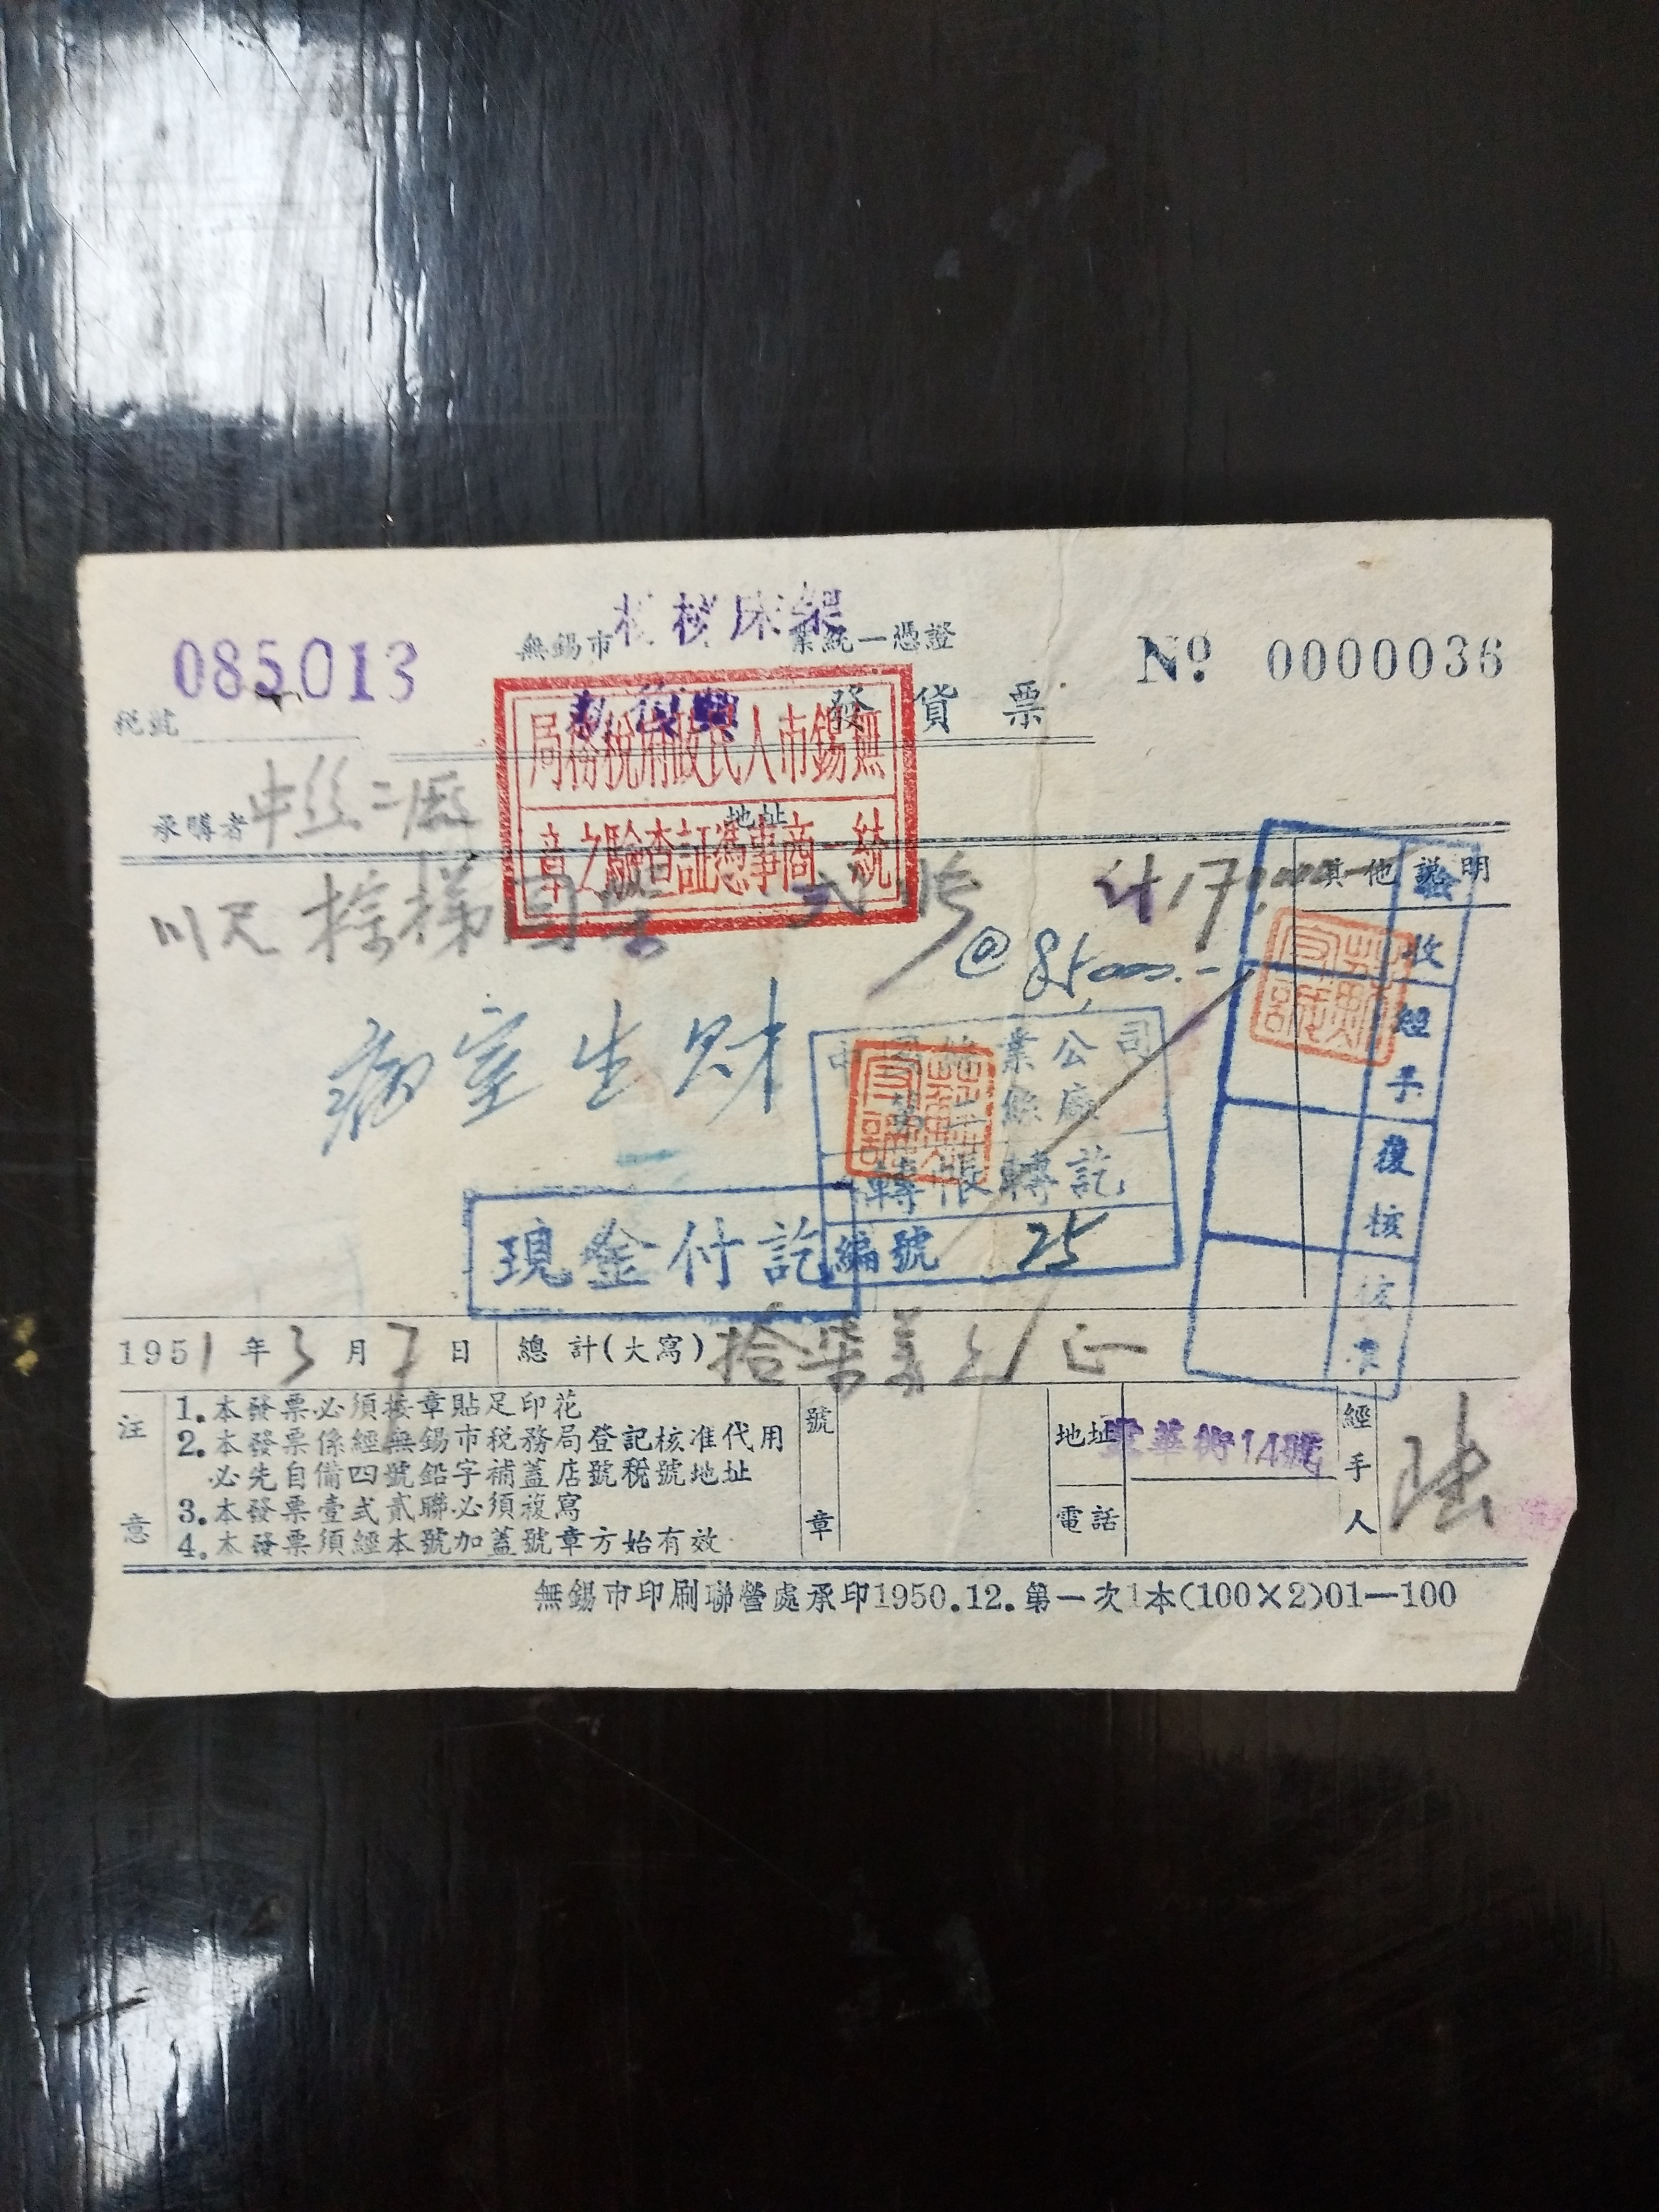 085013
無錫市
床架
業統一憑證
№ 0000036
稅號
發貨票
無錫市人民政府稅務局
統一商事憑証查驗之章
承購者 中丝二廠
地址
其他說明
川尺棕
弍
计17
@ 85000.-
病室生财
業公司
廠
轉帳轉訖
編號 25
現金付訖
驗收
經手
復核
核准
1951年3月7日
總計(大寫) 拾柒萬元正
注意
1. 本發票必須按章貼足印花
2. 本發票係經無錫市稅務局登記核准代用
必先自備四號鉛字補蓋店號稅號地址
3. 本發票壹式貳聯必須複寫
4. 本發票須經本號加蓋號章方始有效
號章
地址 華街14號
電話
經手人 陆
無錫市印刷聯營處承印1950.12.第一次1本(100×2)01—100